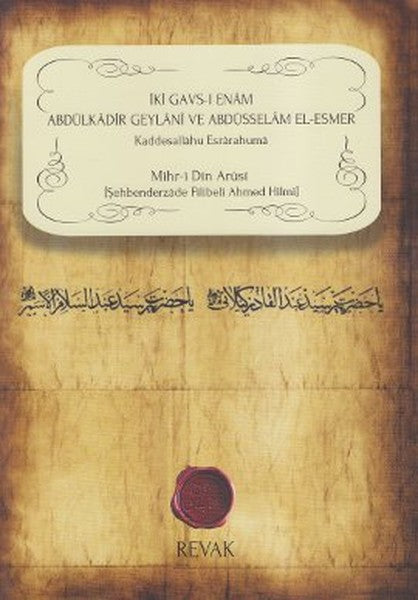 İKİ GAVS-I ENÂM
ABDÜLKÂDİR GEYLÂNÎ VE ABDÜSSELÂM EL-ESMER
Kaddesallâhu Esrârahumâ
Mihr-i Dîn Arûsî
[Şehbenderzâde Filibeli Ahmed Hilmi]
يا حضرت پير سيد عبد القادر كيلانى يا حضرت پير سيد عبد السلام الاسمر
REVAK